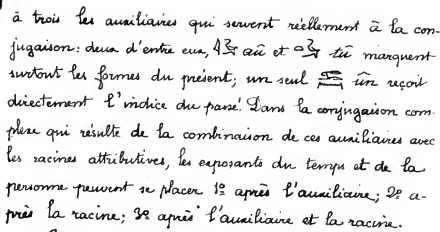 à trois les auxiliaires qui servent réellement à la con-
jugaison: deux d'entre eux, aû et tû marquent
surtout les formes du présent; un seul ûn reçoit
directement l'indice du passé. Dans la conjugaison com-
plexe qui résulte de la combinaison de ces auxiliaires avec
les racines attributives, les exposants du temps et de la
personne peuvent se placer 1º après l'auxiliaire; 2º a-
près la racine; 3º après l'auxiliaire et la racine.